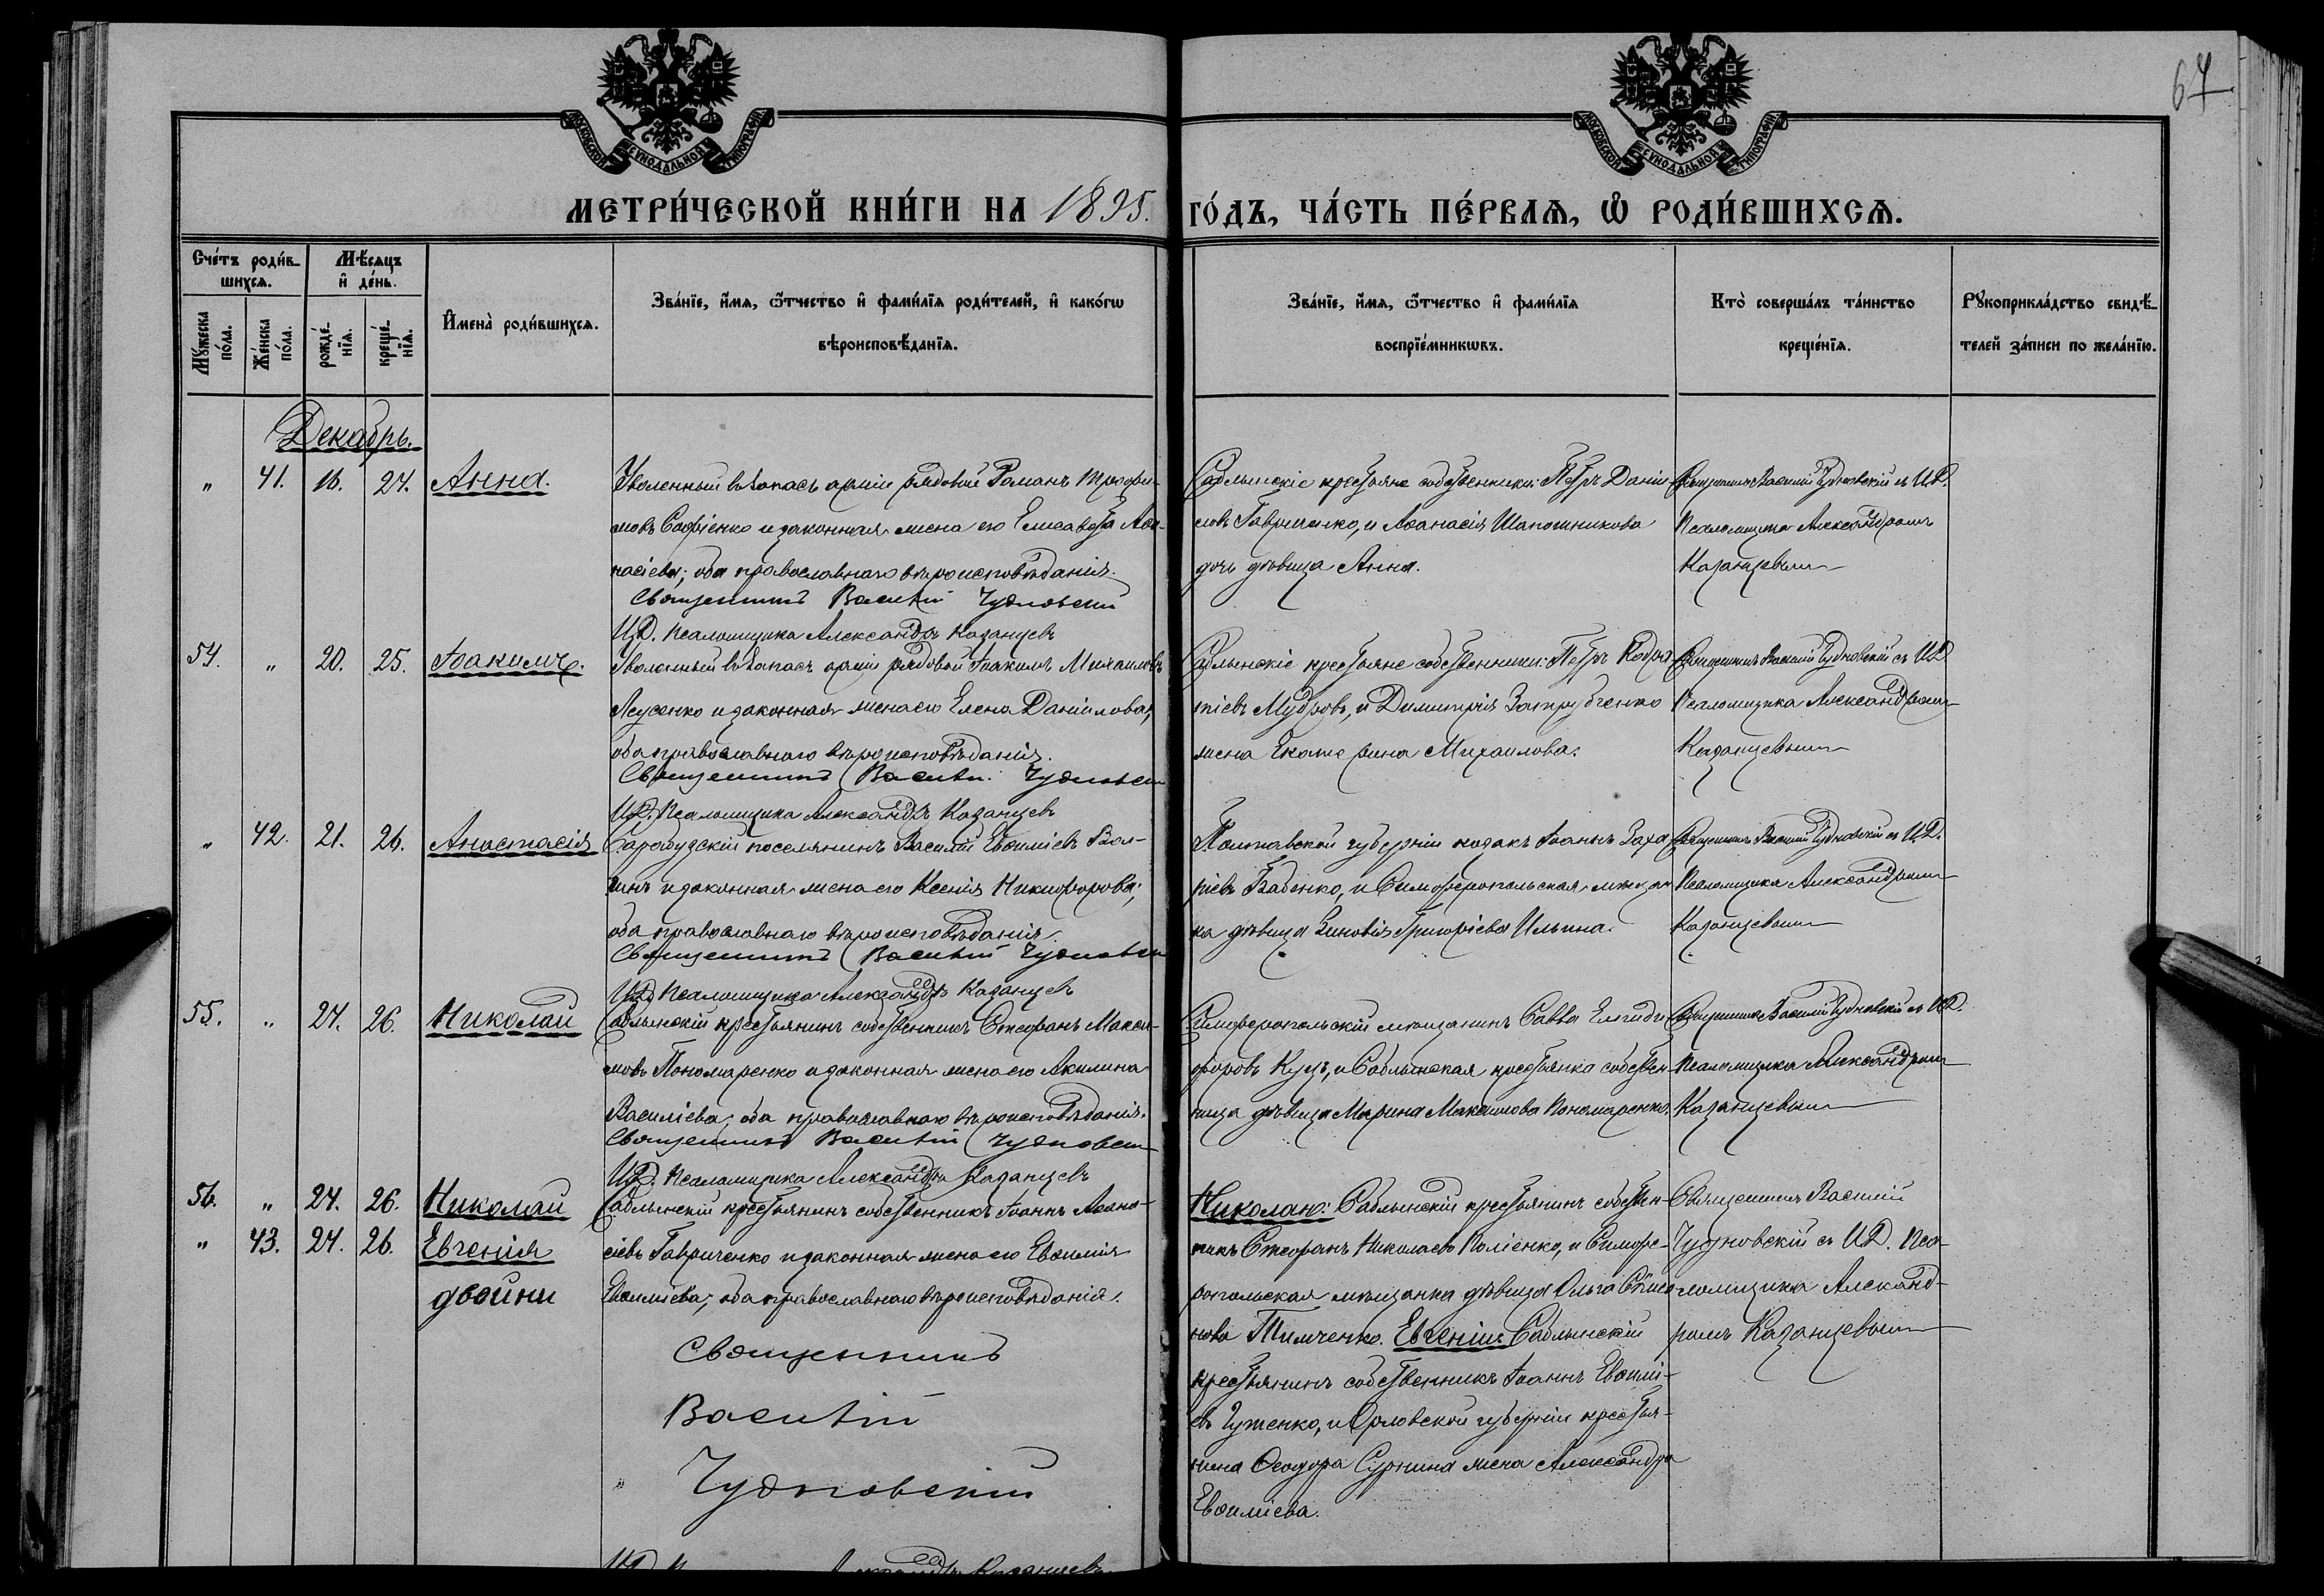 67
МОСКОВСКОЙ СѴНОДАЛЬНОЙ ТИПОГРАФІИ
МОСКОВСКОЙ СѴНОДАЛЬНОЙ ТИПОГРАФІИ
МЕТРИ́ЧЕСКОЙ КНИ́ГИ НА 1895. ГО́ДЪ, ЧА́СТЬ ПЕ́РВАѦ, Ѡ҆ РОДИ́ВШИХСѦ.
Сче́тъ роди́в-
шихсѧ.
Мꙋ́жеска по́ла.
Же́нска по́ла.
Мѣ́сѧцъ
и҆ де́нь.
рожде́-нїѧ.
креще́-нїѧ.
И҆мена̀ роди́вшихсѧ.
Зва́нїе, и҆́мѧ, ѻ҆́тчество и҆ фами́лїѧ роди́телей, и҆ како́гѡ
вѣроисповѣ́данїѧ.
Зва́нїе, и҆́мѧ, ѻ҆́тчество и҆ фами́лїѧ
воспрїе́мникѡвъ.
Кто̀ соверша́лъ та́инство
креще́нїѧ.
Рꙋкоприкла́дство свидѣ́-
телей за́писи по жела́нїю.
Декабрь.
" 41. 16. 24. Анна.
Уволенный въ запасъ арміи рядовой Романъ Трофи-
мовъ Софіенко и законная жена его Елисавета Аѳа-
насіева; оба православнаго вѣроисповѣданія.
Священникъ Василій Чудновскій
И.Д. Псаломщика Александръ Казанцевъ
Саблынскіе крестьяне собственники: Петръ Даніи-
ловъ Гавриченко, и Аѳанасія Шапошникова
дочь дѣвица Анна.
Священникъ Василій Чудновскій съ И.Д.
Псаломщика Александромъ
Казанцевымъ
54. " 20. 25. Іоакимъ.
Уволенный въ запасъ арміи рядовой Іоакимъ Михаиловъ
Лсусенко и законная жена его Елена Даніилова,
оба православнаго вѣроисповѣданія.
Священникъ Василій Чудновскій
И.Д. Псаломщика Александръ Казанцевъ
Саблынскіе крестьяне собственники: Петръ Кодра-
тіевъ Мудровъ, и Димитрія Затрубченко
жена Екатерина Михаилова.
Священникъ Василій Чудновскій съ И.Д.
Псаломщика Александромъ
Казанцевымъ
" 42. 21. 26. Анастасія
Сарабузскій поселянинъ Василій Евѳиміевъ
и законная жена его Ксенія Никифорова;
оба православнаго вѣроисповѣданія.
Священникъ Василій Чудновскій
И.Д. Псаломщика Александръ Казанцевъ
Полтавской губерніи козакъ Іоаннъ Заха-
ріевъ Бабенко, и Симферопольская мѣщан-
ка дѣвица Зиновія Григоріева Ильина.
Священникъ Василій Чудновскій съ И.Д.
Псаломщика Александромъ
Казанцевымъ
55. " 24. 26. Николай
Саблынскій крестьянинъ собственникъ Стефанъ Макси-
мовъ Пономаренко и законная жена его Акилина
Василіева; оба православнаго вѣроисповѣданія.
Священникъ Василій Чудновскій
И.Д. Псаломщика Александръ Казанцевъ
Симферопольскій мѣщанинъ Савва Елпиди-
форовъ Куцъ, и Саблынская крестьянка собствен-
ница дѣвица Марина Максимова Пономаренко.
Священникъ Василій Чудновскій съ И.Д.
Псаломщика Александромъ
Казанцевымъ
56. " 24. 26. Николай
" 43. 24. 26. Евгенія
двойни
Саблынскій крестьянинъ собственникъ Іоаннъ Аѳана-
сіевъ Гавриченко и законная жена его Евѳимія
Евѳиміева; оба православнаго вѣроисповѣданія.
Священникъ
Василій
Чудновскій
Александръ Казанцевъ
Николаю: Саблынскій крестьянинъ собствен-
никъ Стефанъ Николаевъ Поліенко, и Симфе-
ропольская мѣщанка дѣвица Ольга
нова Тимченко. Евгеніи: Саблынскій
крестьянинъ собственникъ Іоаннъ Евѳимі-
евъ Чуженко, и Орловской губерніи крестья-
нина Ѳеодора Сурнина жена Александра
Евѳиміева.
Священникъ Василій
Чудновскій съ И.Д. Пса-
ломщика Александ-
ромъ Казанцевымъ